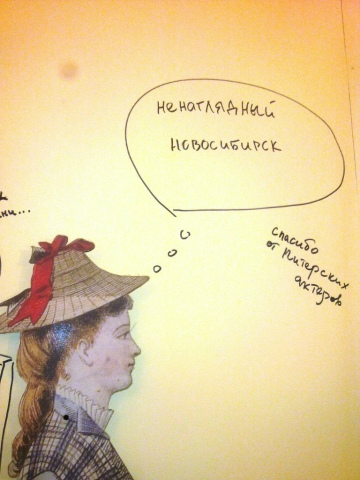 ненаглядный
новосибирск
спасибо
от Питерских
актеров
ни...